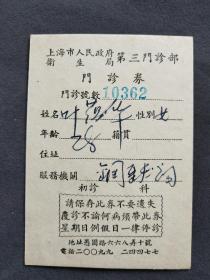 上海市人民政府
衛生局 第三門診部
門診券
門診號數 10362
姓名 葉 華 性別 女
年齡 28 籍貫
住址
服務機關
初診 科
請保存此券不要遺失
覆診不論何病須帶此券
星期日例假日一律停診
地址愚園路六六八弄十號
電話二〇〇九九 二四四七七